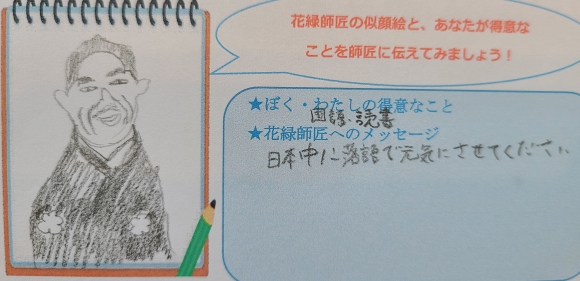 花緑師匠の似顔絵と、あなたが得意な
ことを師匠に伝えてみましょう！
★ぼく・わたしの得意なこと
国語・読書
★花緑師匠へのメッセージ
日本中に落語で元気にさせてください